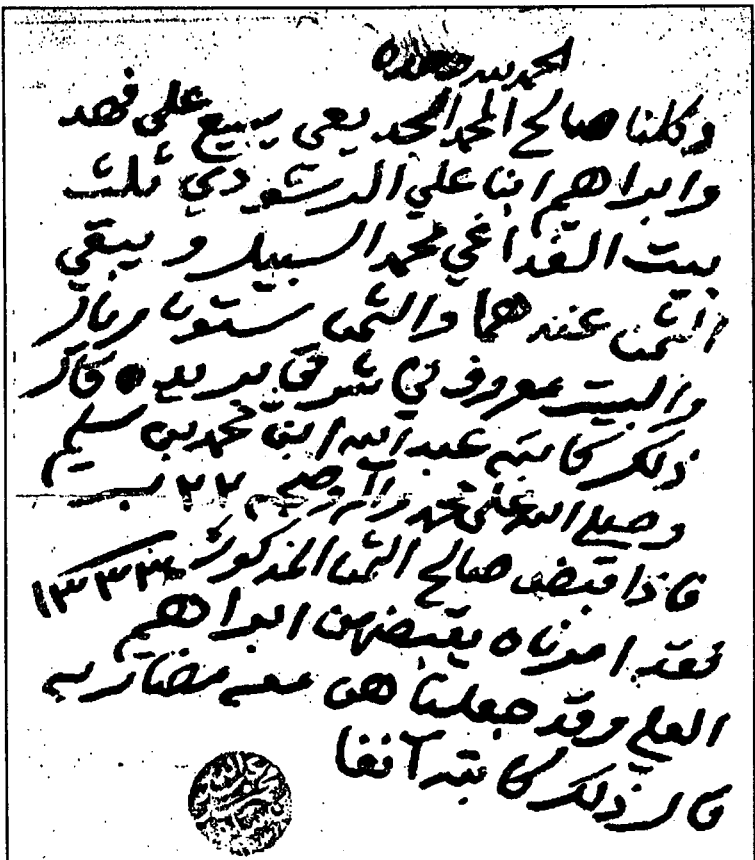 الحمد لله وحده
وكلنا صالح المحمد المحديعي يبيع على فهد
وابراهيم ابنا علي الرشودي ثلث
بيت القداغي محمد السبيل ويبقي
الثمن عندهما والثمن ستون ريال
والبيت معروف في شرقي بريده قال
ذلك كاتبه عبد الله ابن محمد بن سليم
وصلى الله على محمد واله وصحبه ٢٧ ن
فاذا قبض صالح الثمن المذكور ١٣٣٣
فقد امرناه يقبضهن ابراهيم
العلي وقد جعلنا هن معه مضاربه
قال ذلك كاتبه آنفا